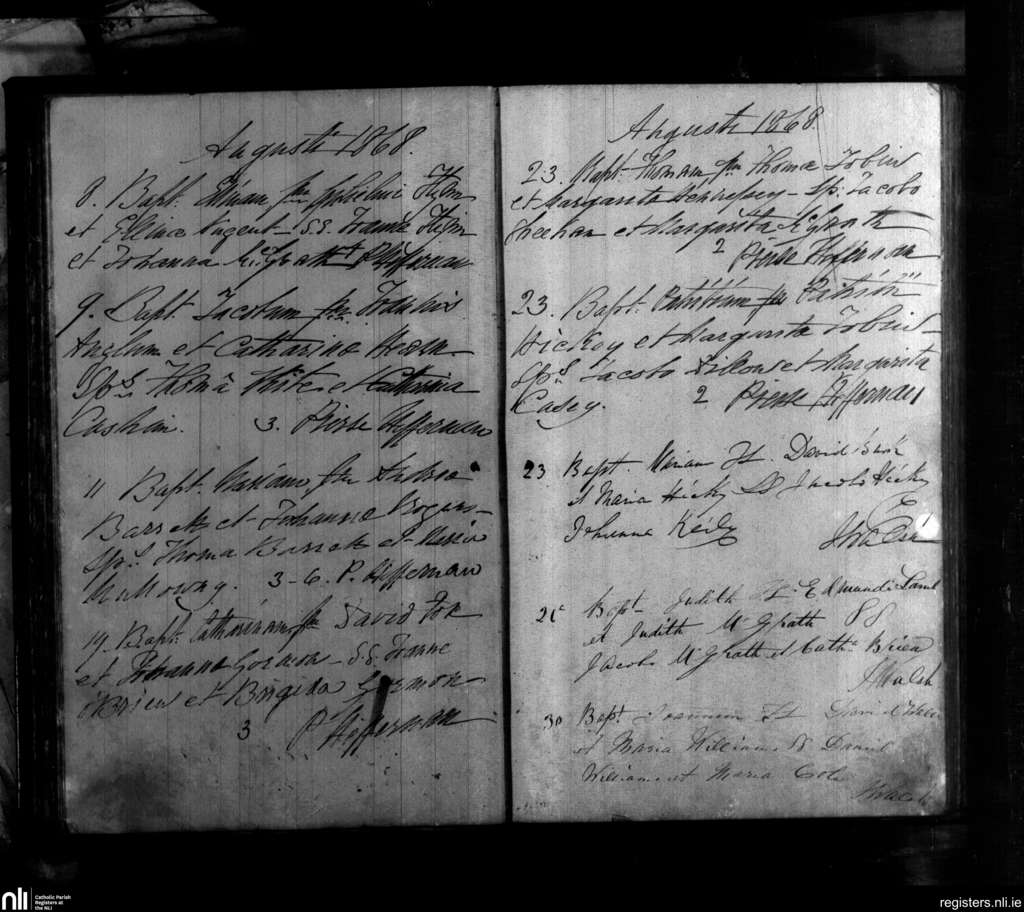 Augusti 1868.
8. Bapt. fm
et Nugent - SS.
et Johanna McGrath P Heffernan
9. Bapt. Jacobum fm Francis
Anglum et Catharina Hearn
Sps. Thoma White et Catharina
Cashin. 3. Pierse Heffernan
11 Bapt. Mariam fm
Barrett et Johanna Rogers -
Sps. Thoma Barrett et Maria
Mullowny. 3-6. P. Heffernan
19. Bapt. Catharinam fm David Fox
et Johanna Gormon - S.S.
O'Brien et Brigida Gormon
3 P Heffernan
Augusti 1868.
23. Bapt. Thomam fm Thomæ Tobin
et Margarita Hennessey - Sps. Jacobo
Sheehan et Margarita McGrath
2 Pierse Heffernan
23. Bapt. fm
Hickey et Margarita Tobin -
Sps. Jacobo et Margarita
Casey. 2 Pierse Heffernan
23 Bapt. Mariam F. David
et Maria Hickey SS Jacobo Hickey
Johanna Keily
J Walsh
25 Bapt Judith F. Edmundi
et Judith McGrath SS
Jacobo McGrath et Cath. Brien
J Walsh
30 Bapt Joannem
et Maria Williams SS Daniel
Williams et Maria
J Walsh
nli
Catholic Parish
Registers at
the NLI
registers.nli.ie